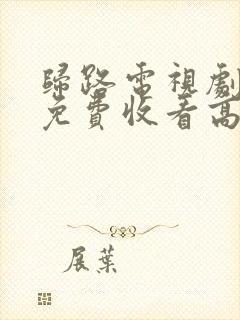 歸路電視劇
免費收看高
展葉